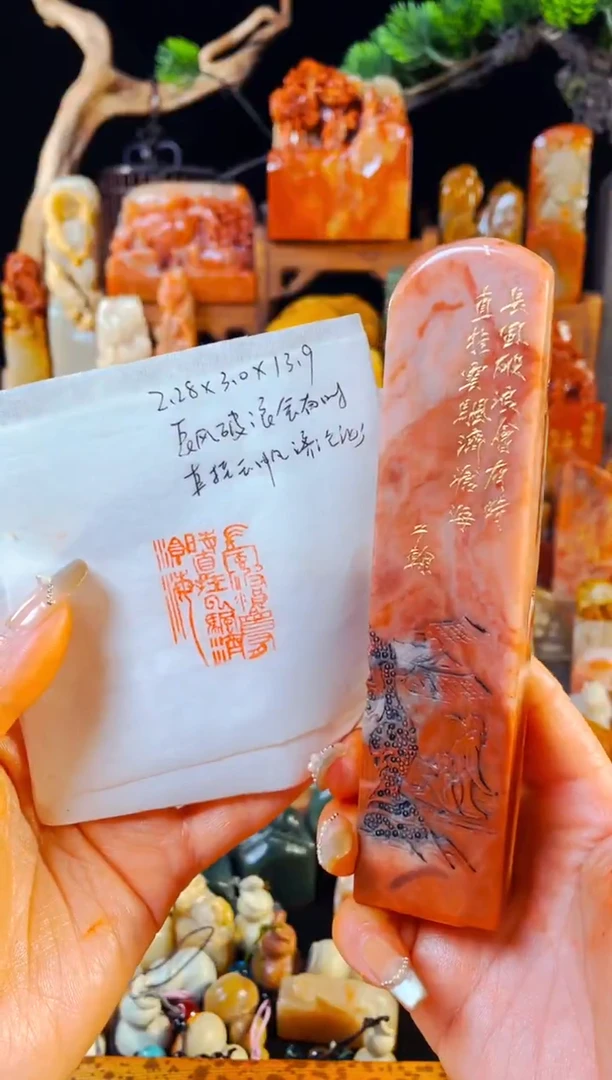 2.28×3.0×13.9
长风破浪会有时
直挂云帆济沧海
長風破浪會有時
直挂雲帆濟滄海
長風破浪會有
時直挂雲帆濟
滄海